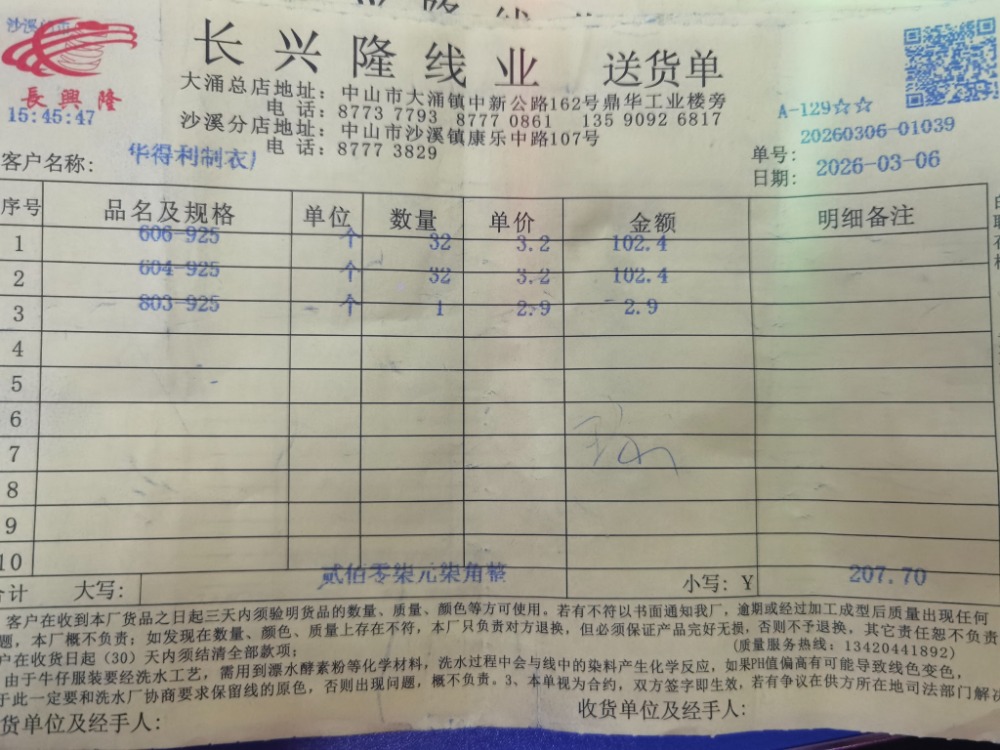 长兴隆线业 送货单
長興隆
15:45:47
大涌总店地址: 中山市大涌镇中新公路162号鼎华工业楼旁
电 话: 8773 7793 8777 0861 135 9092 6817
沙溪分店地址: 中山市沙溪镇康乐中路107号
电 话: 8777 3829
A-129☆☆
单号: 20260306-01039
日期: 2026-03-06
客户名称: 华得利制衣厂
序号 品名及规格 单位 数量 单价 金额 明细备注
1 606-925 个 32 3.2 102.4
2 604-925 个 32 3.2 102.4
3 803-925 个 1 2.9 2.9
4
5
6
7
8
9
10
合计 大写: 贰佰零柒元柒角整 小写: ¥ 207.70
客户在收到本厂货品之日起三天内须验明货品的数量、质量、颜色等方可使用。若有不符以书面通知我厂, 逾期或经过加工成型后质量出现任何
题, 本厂概不负责; 如发现在数量、颜色、质量上存在不符, 本厂只负责对方退换, 但必须保证产品完好无损, 否则不予退换, 其它责任恕不负责
户在收货日起(30)天内须结清全部款项; (质量服务热线: 13420441892)
由于牛仔服装要经洗水工艺, 需用到漂水酵素粉等化学材料, 洗水过程中会与线中的染料产生化学反应, 如果PH值偏高有可能导致线色变色,
于此一定要和洗水厂协商要求保留线的原色, 否则出现问题, 概不负责。3、本单视为合约, 双方签字即生效, 若有争议在供方所在地司法部门解决
货单位及经手人: 收货单位及经手人: